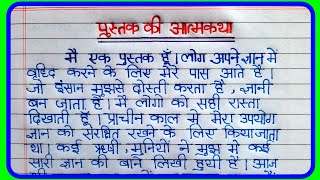 पुस्तक की आत्मकथा
मैं एक पुस्तक हूँ। लोग अपने ज्ञान में
वृध्दि करने के लिए मेरे पास आते हैं।
जो इंसान मुझसे दोस्ती करता हैं, ज्ञानी
बन जाता हैं। मैं लोगों को सही रास्ता
दिखाती हूँ। प्राचीन काल में मेरा उपयोग
ज्ञान को संरक्षित रखने के लिए किया जाता
था। कई ऋषी, मुनियों ने मुझ में कई
सारी ज्ञान की बाते लिखी हुयी हैं। आज